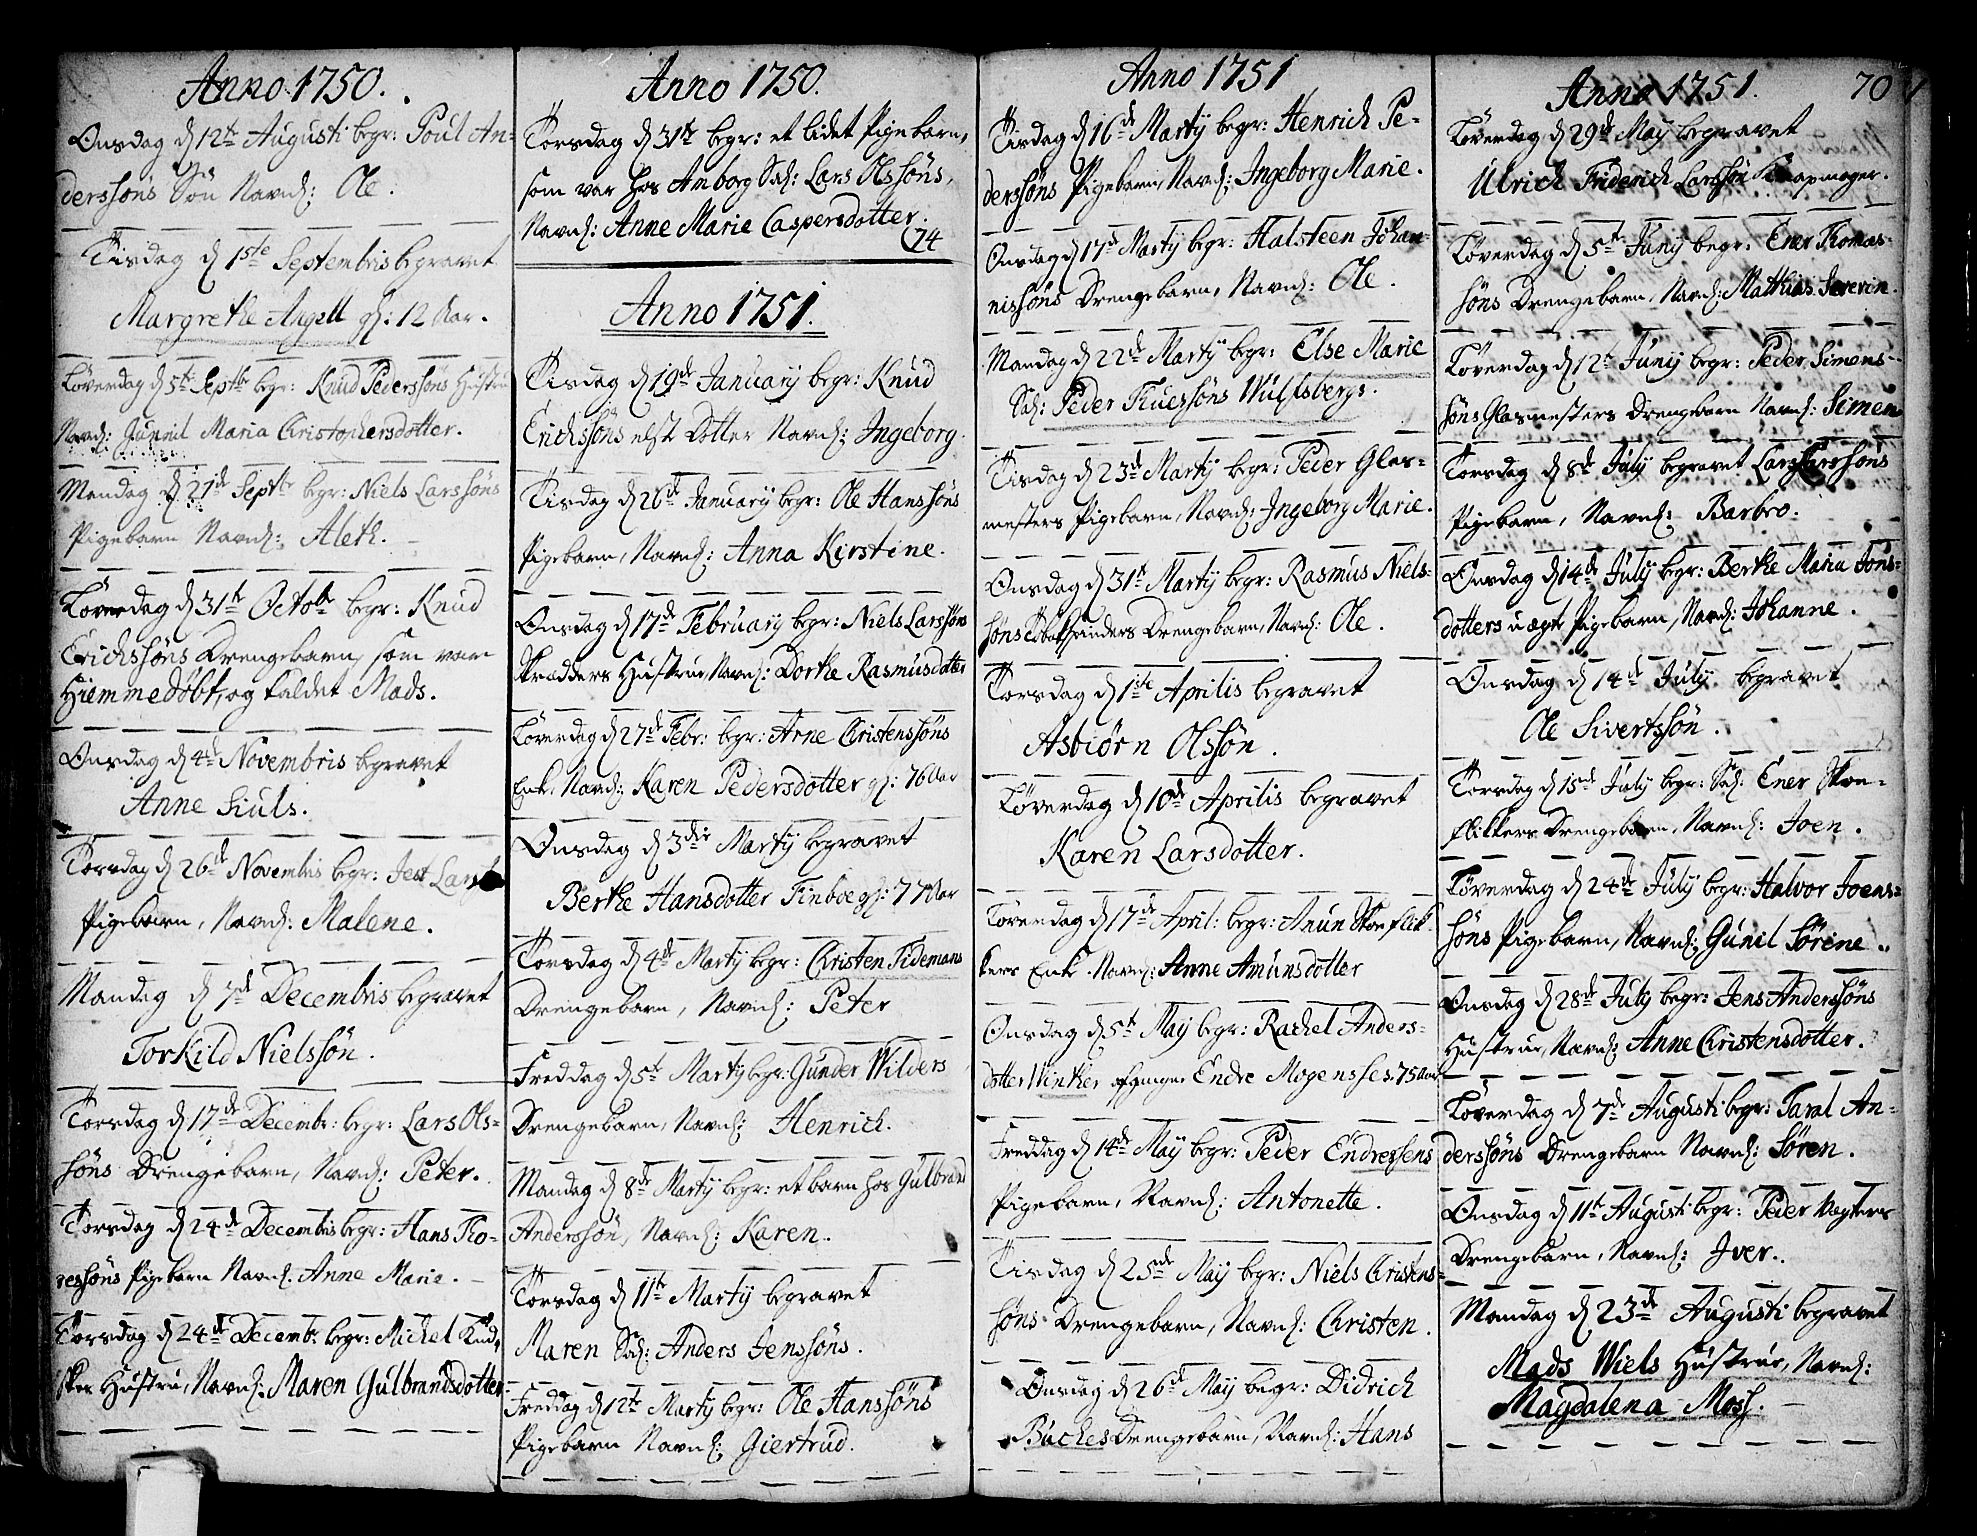 Anno 1750.
Onsdag d 12te Augusti begr: Poul An-
derssøns Søn Navnl: Ole.
Tisdag d 1ste Septembris begravet
Margrethe Angell gl: 12 Aar.
Løverdag d 5te Septbr begr: Knud Pederssøns Hustru
Navnl: Gunnil Maria Christophersdotter.
Mandag d 21de Septbr begr: Niels Larssøns
Pigebarn Navnl: Aleth.
Løverdag d 31te Octobr begr: Knud
Erichssøns Drengebarn, som var
Hiemmedøbt, og kaldet Mads.
Onsdag d 4de Novembris begravet
Anne Siuls.
Torsdag d 26de Novembris begr: Jest
Pigebarn, Navnl: Malene.
Mandag d 7de Decembris begravet
Torkild Nielssøn.
Torsdag d 17de Decembr: begr: Lars Ols-
søns Drengebarn, Navnl: Peter.
Torsdag d 24de Decembris begr: Hans Tho-
ressøns Pigebarn Navnl: Anne Marie.
Torsdag d 24de Decembr: begr: Michel
Hustru, Navnl: Maren Gulbrandsdotter
Anno 1750.
Torsdag d 31te begr: et lidet Pigebarn,
som var hos Amborg Sal: Lars Olssøns,
Navnl: Anne Marie Caspersdotter.
(74
Anno 1751.
Tisdag d 19de January begr: Knud
Erichssøns elst Dotter Navnl: Ingeborg.
Tisdag d 26de January begr: Ole Hanssøns
Pigebarn, Navnl: Anna Kirstine.
Onsdag d 17de February begr: Niels Larssøns
Skrædders Hustru, Navnl: Dorthe Rasmusdatter
Løverdag d 27de Febr: begr: Arne Christenssøns
Enke, Navnl: Karen Pedersdotter gl: 76 Aar
Onsdag d 3die Marty begravet
Berthe Hansdotter Finboe gl: 77 Aar
Torsdag d 4de Marty begr: Christen Tidemans
Drengebarn, Navnl: Peter
Freddag d 5te Marty begr: Gunder Wilders
Drengebarn, Navnl: Henrich.
Mandag d 8de Marty begr: et barn hos Gulbrand
Anderssøn, Navnl: Karen.
Torsdag d 11te Marty begravet
Maren Sal: Anders Jenssøns.
Freddag d 12te Marty begr: Ole Hanssøns
Pigebarn Navnl: Giertrud.
Anno 1751
Tisdag d 16de Marty begr: Henrich Pe-
derssøns Pigebarn, Navnl: Ingeborg Marie.
Onsdag d 17de Marty begr: Halsteen Johan-
nissøns Drengebarn, Navnl: Ole.
Mandag d 22de Marty begr: Else Marie
Sal: Peder Truessøns Wulfsbergs.
Tisdag d 23de Marty begr: Peder Glas-
mesters Pigebarn, Navnl: Ingeborg Marie.
Onsdag d 31te Marty begr: Rasmus Niels-
søns Drengebarn, Navnl: Ole.
Torsdag d 1ste Aprilis begravet
Asbiørn Olssøn.
Løverdag d 10de Aprilis begravet
Karen Larsdotter.
Løverdag d 17de April: begr: Anun Skoeflik-
kers Enke. Navnl: Anne Amunsdotter
Onsdag d 5te May begr: Rachel Anders-
dotter Winther afgangne Endre Mogensses. 75 Aar
Freddag d 14de May begr: Peder Endressens
Pigebarn, Navnl: Antonette.
Tisdag d 25de May begr: Niels Christens-
søns Drengebarn, Navnl: Christen.
Onsdag d 26de May begr: Didrich
Büches Drengebarn, Navnl: Hans
Anno 1751.
70
Løverdag d 29de May begravet
Ulrich Friderich Larssøn Knapmager.
Løverdag d 5te Juny begr: Ener Thomas-
søns Drengebarn, Navnl: Mathias Severin.
Løverdag d 12te Juny begr: Peder Simens-
søns Glasmesters Drengebarn Navnl: Simen
Torsdag d 8de July begravet Lars Larssøns
Pigebarn, Navnl: Barbro.
Onsdag d 14de July begr: Berthe Maria Jons-
dotters uægte Pigebarn, Navnl: Johanne.
Onsdag d 14de July begravet
Ole Sivertssøn.
Torsdag d 15de July begr: Sal: Ener Skoe-
flikkers Drengebarn, Navnl: Joen.
Løverdag d 24de July begr: Halvor Joens-
søns Pigebarn, Navnl: Gunil Sørine.
Onsdag d 28de July begr: Jens Anderssøns
Hustrue, Navnl: Anne Christensdotter.
Løverdag d 7de Augusti begr: Taral An-
derssøns Drengebarn Navnl: Søren.
Onsdag d 11te Augusti begr: Peder Vegters
Drengebarn, Navnl: Iver.
Mandag d 23de Augusti begravet
Mads Wiels Hustrue, Navnl:
Magdalena Moss.